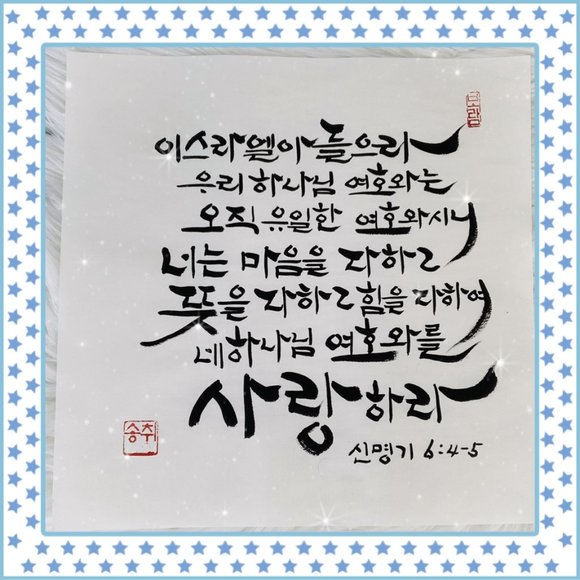 이스라엘아 들으라
우리 하나님 여호와는
오직 유일한 여호와시니
너는 마음을 다하고
뜻을 다하고 힘을 다하여
네 하나님 여호와를
사랑하라
신명기 6:4-5
송취